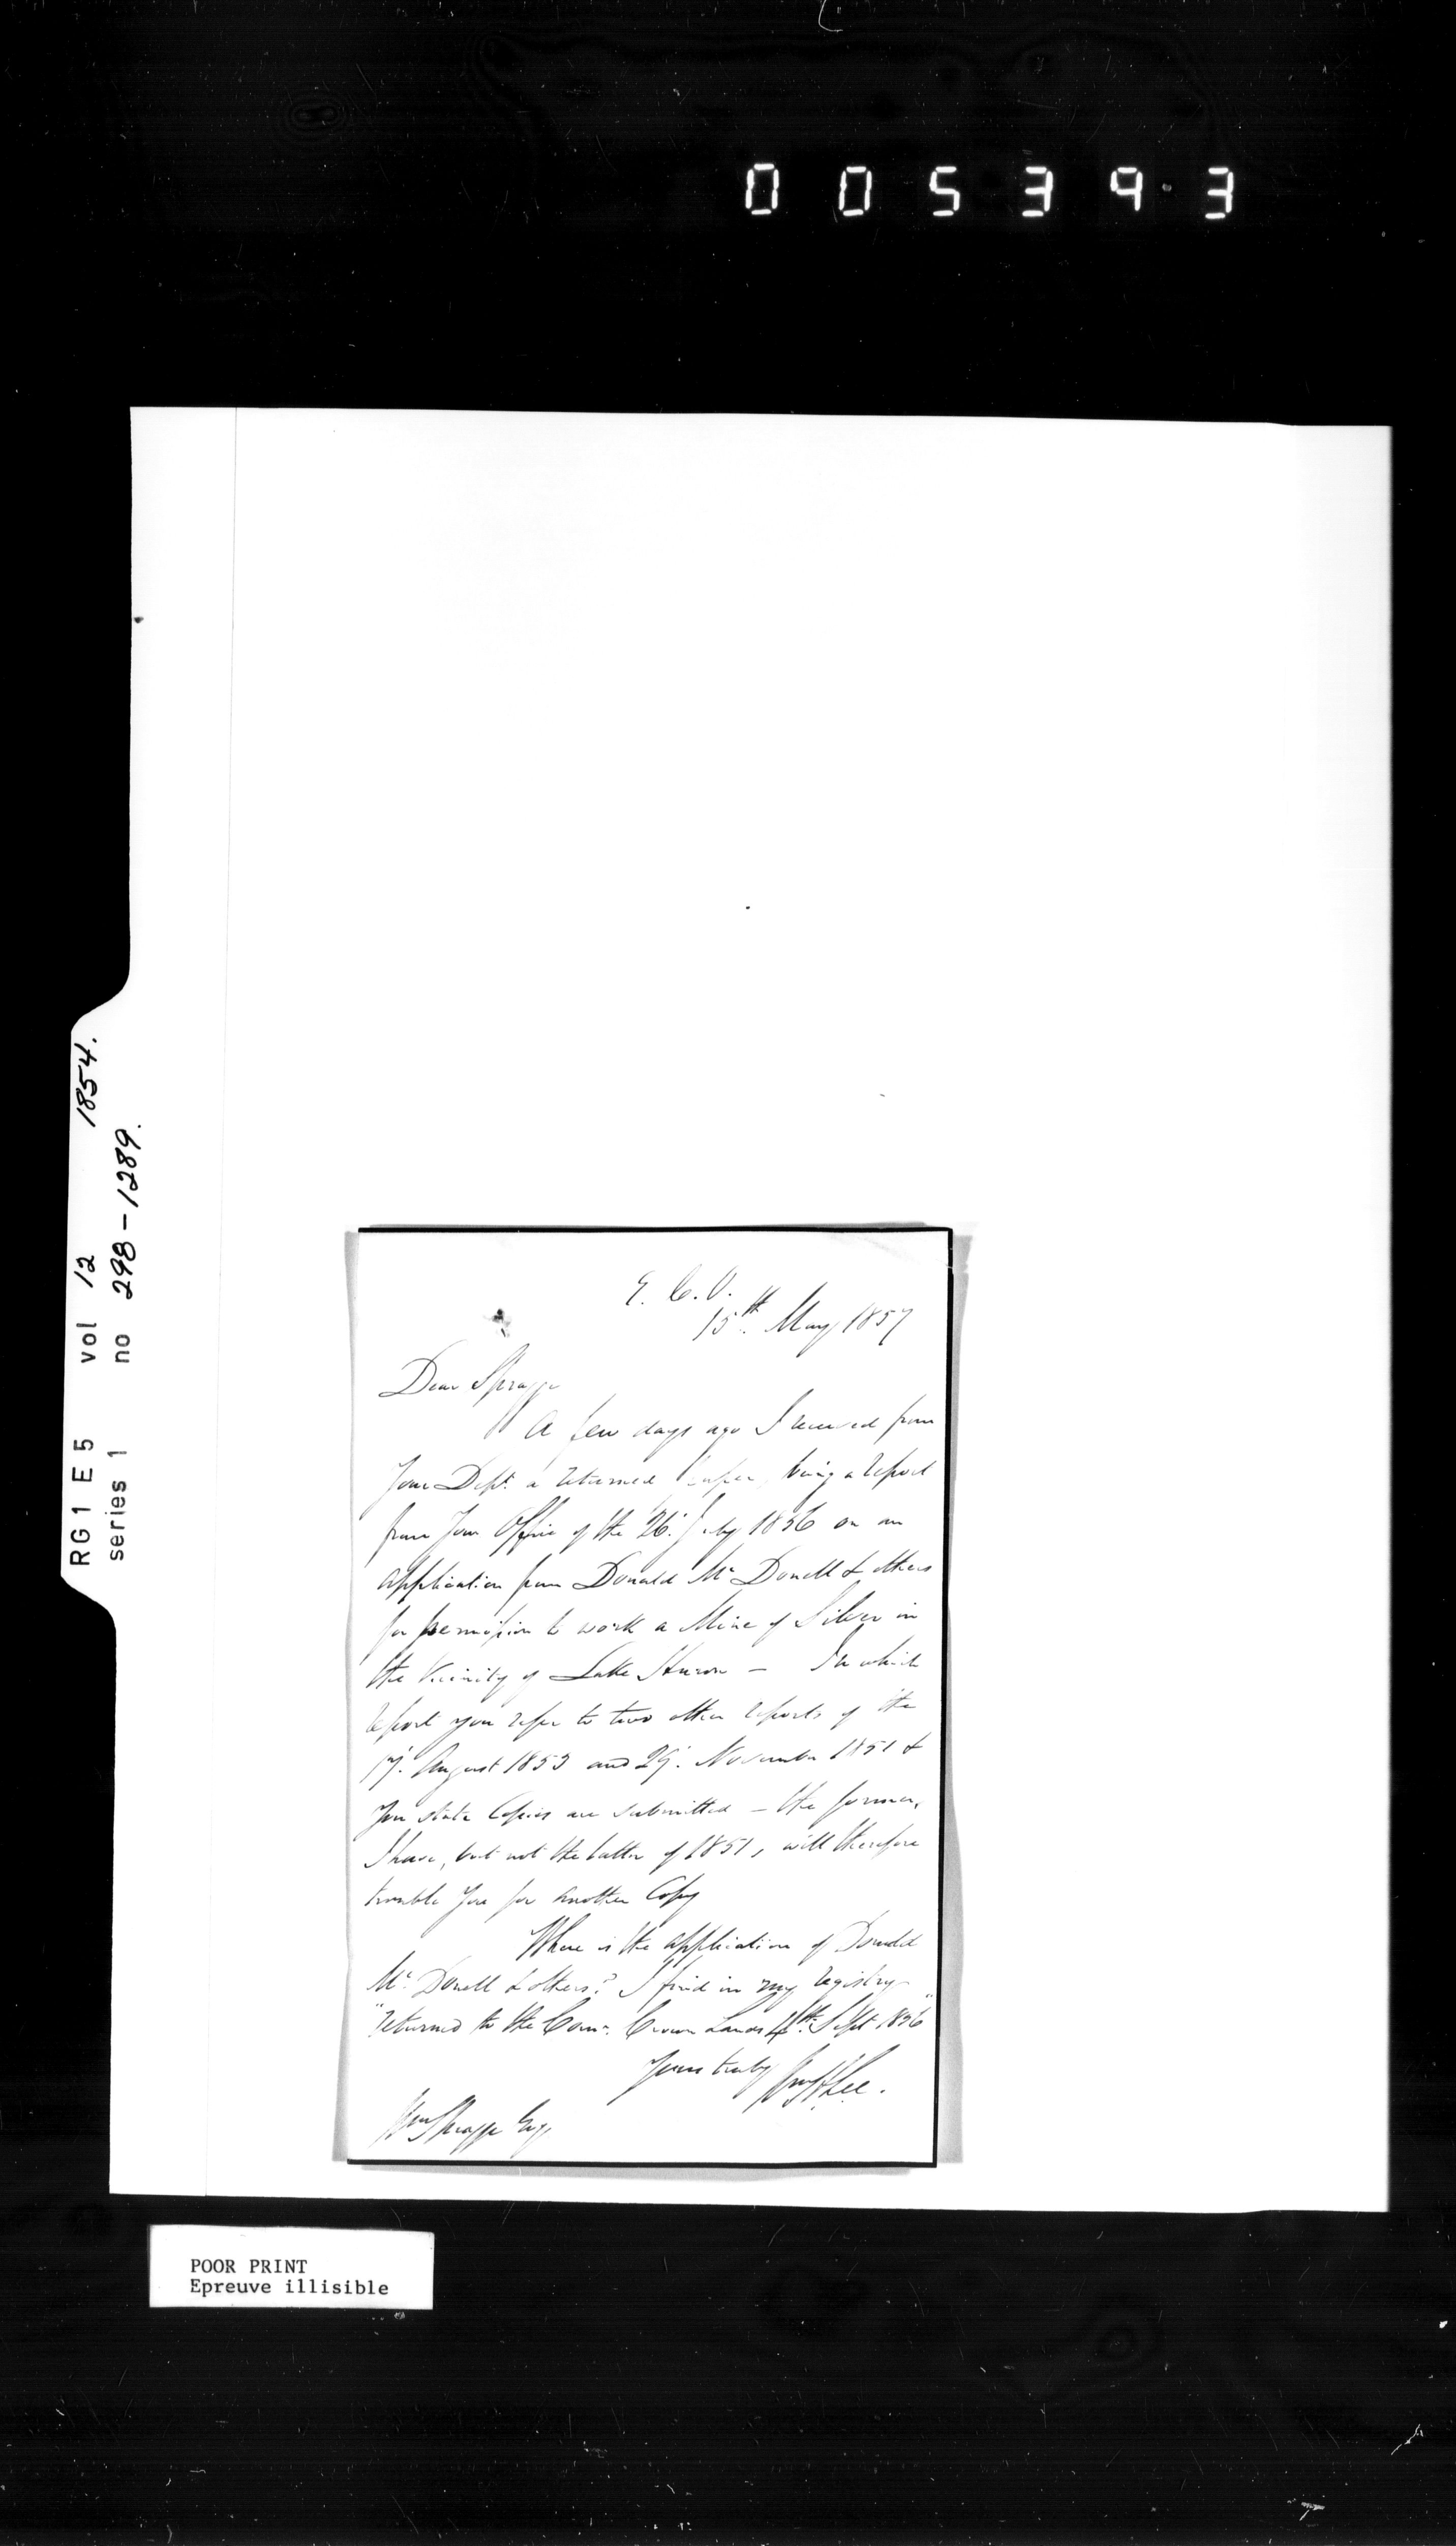 005393
RG1 E5 vol 12 1854.
series 1 no 298-1289.
E. C. O.
15th. May 1857
Dear Spragge
A few days ago I received from
Your Dept. a returned paper, being a report
from Your Office of the 26. July 1856 on an
application from Donald Mc Donell & others
for permission to work a Mine of Silver in
the Vicinity of Lake Huron — In which
report you refer to two other reports of the
17. August 1853 and 29. November 1851 &
You state Copies are submitted — the former,
I have, but not the latter of 1851, will therefore
trouble You for another Copy
Where is the application of Donald
Mc. Donell & others? I find in my registry
"returned to the Comr. Crown Lands 4th. Sept 1856"
Yours truly WmHLee.
Wm Spragge Esq
POOR PRINT
Epreuve illisible